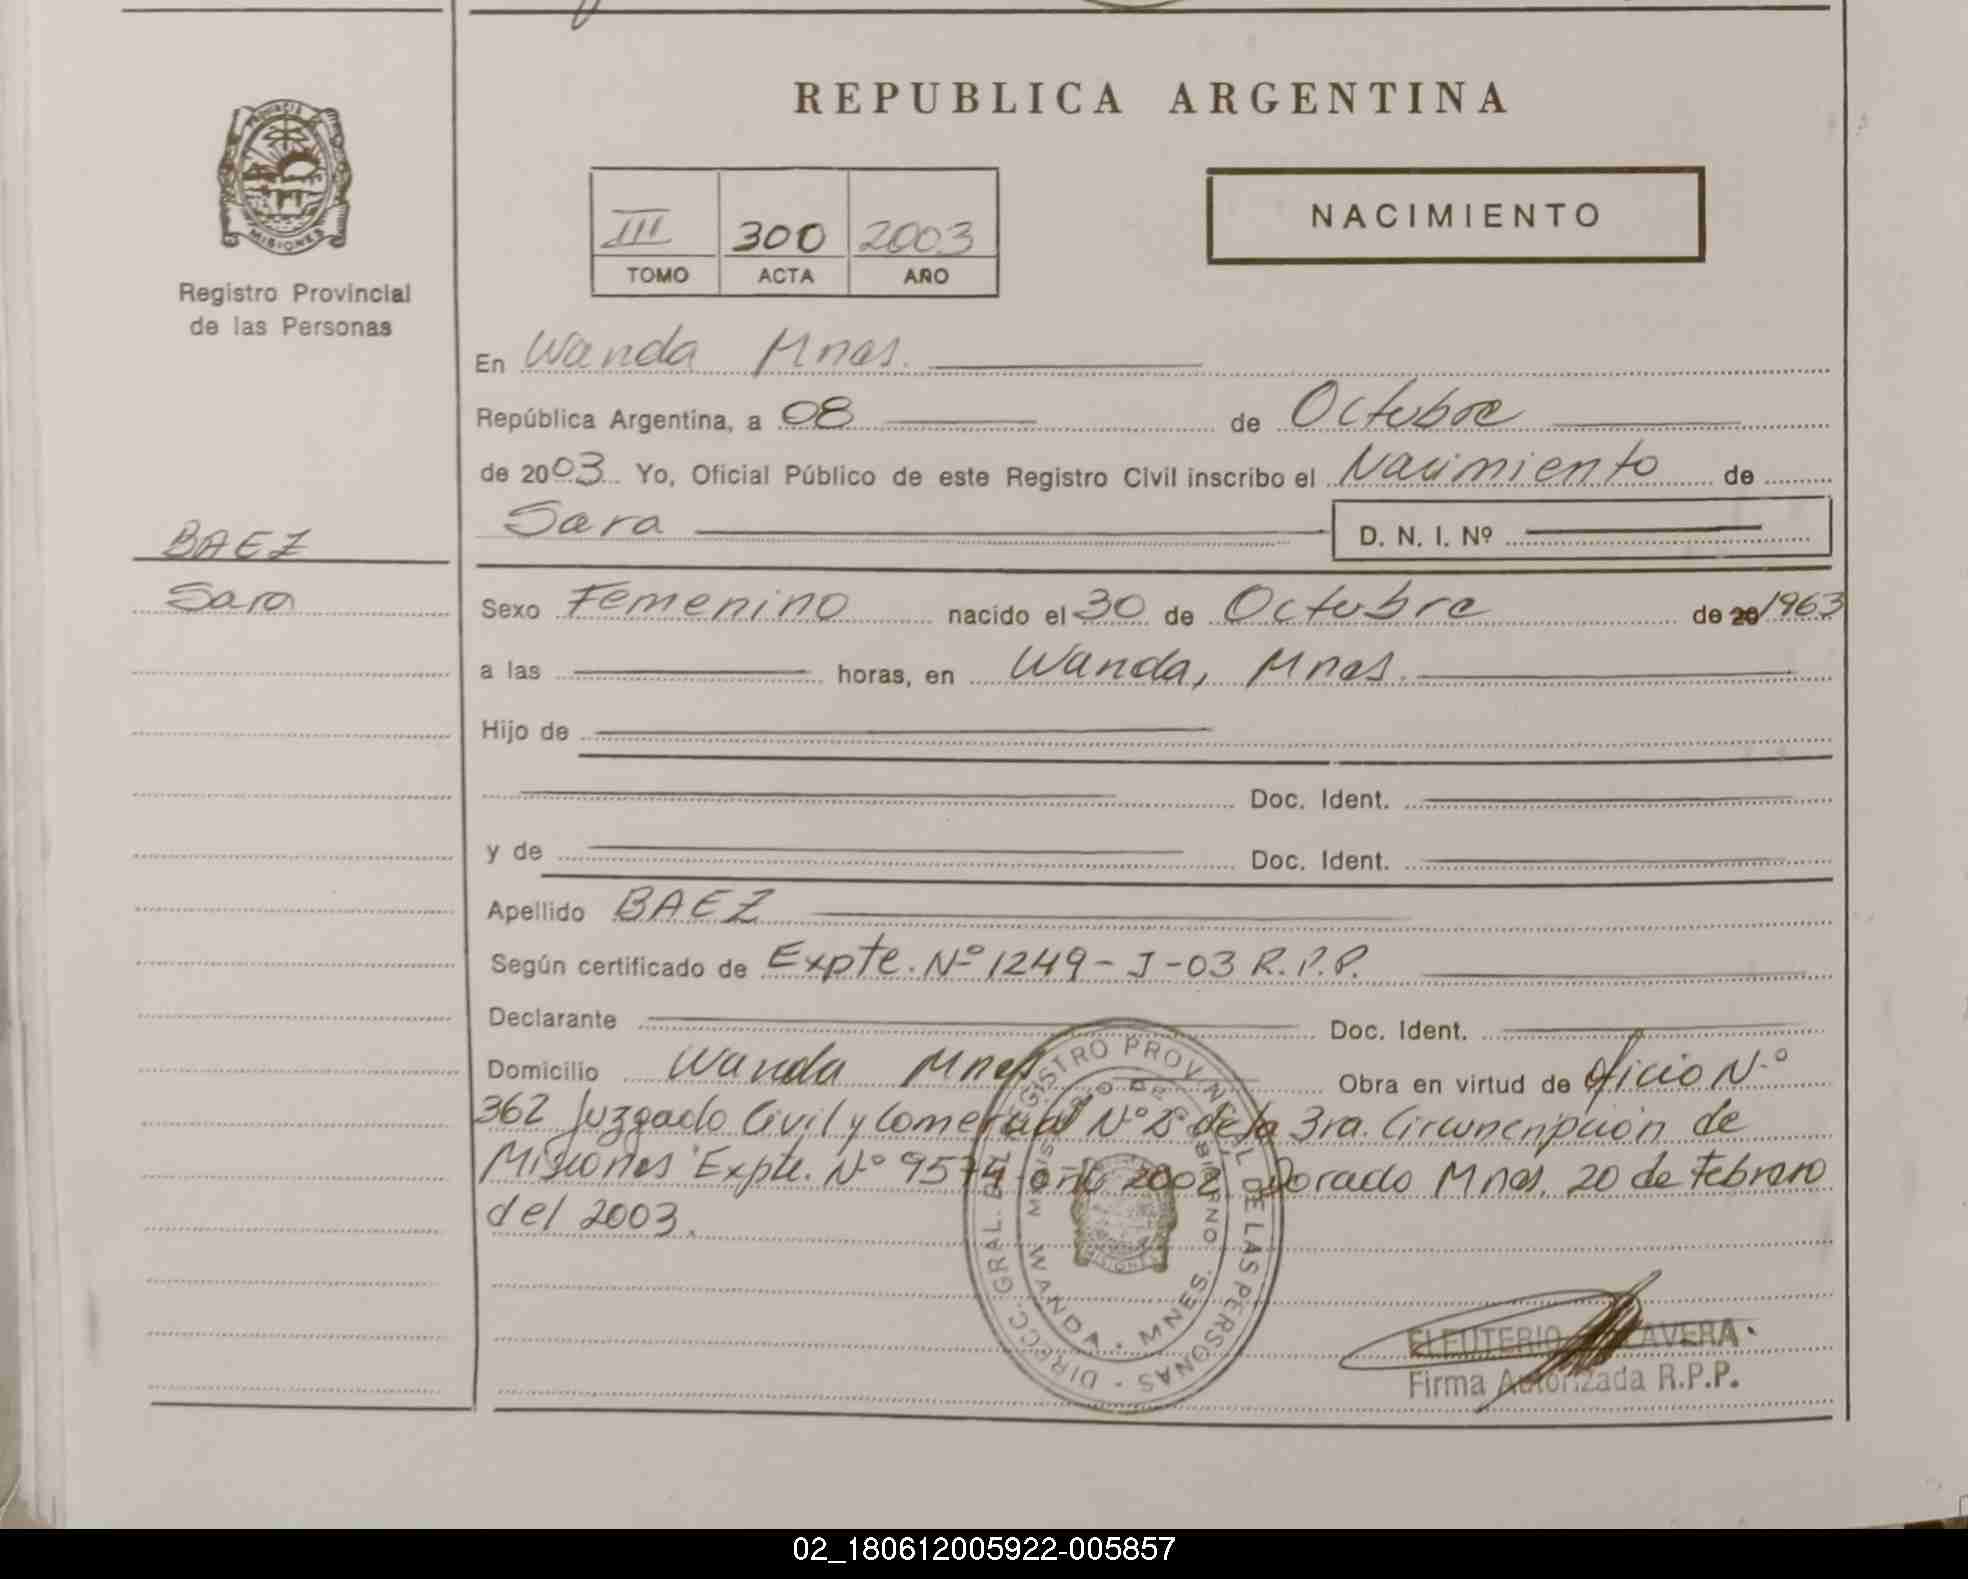 REPUBLICA ARGENTINA
PROVINCIA DE
MISIONES
Registro Provincial
de las Personas
III 300 2003
TOMO ACTA AÑO
NACIMIENTO
En Wanda Mnes.
República Argentina, a 08 de Octubre
de 2003 Yo, Oficial Público de este Registro Civil inscribo el Nacimiento de
Sara D. N. I. Nº
BAEZ
Sara
Sexo Femenino nacido el 30 de Octubre de 20 1963
a las horas, en Wanda, Mnes.
Hijo de
Doc. Ident.
y de Doc. Ident.
Apellido BAEZ
Según certificado de Expte. Nº 1249-J-03 R.P.P.
Declarante Doc. Ident.
Domicilio Wanda Mnes Obra en virtud de oficio N.º
362 Juzgado Civil y Comercial Nº 2 de la 3ra. Circuncripción de
Misiones Expte. Nº 9574 año 2002, Dorado Mnes, 20 de Febrero
del 2003.
DIRECC. GRAL. DEL REGISTRO PROVINCIAL DE LAS PERSONAS
MINISTERIO DE GOBIERNO
WANDA - MNES.
ELEUTERIO
Firma Autorizada R.P.P.
02_180612005922-005857